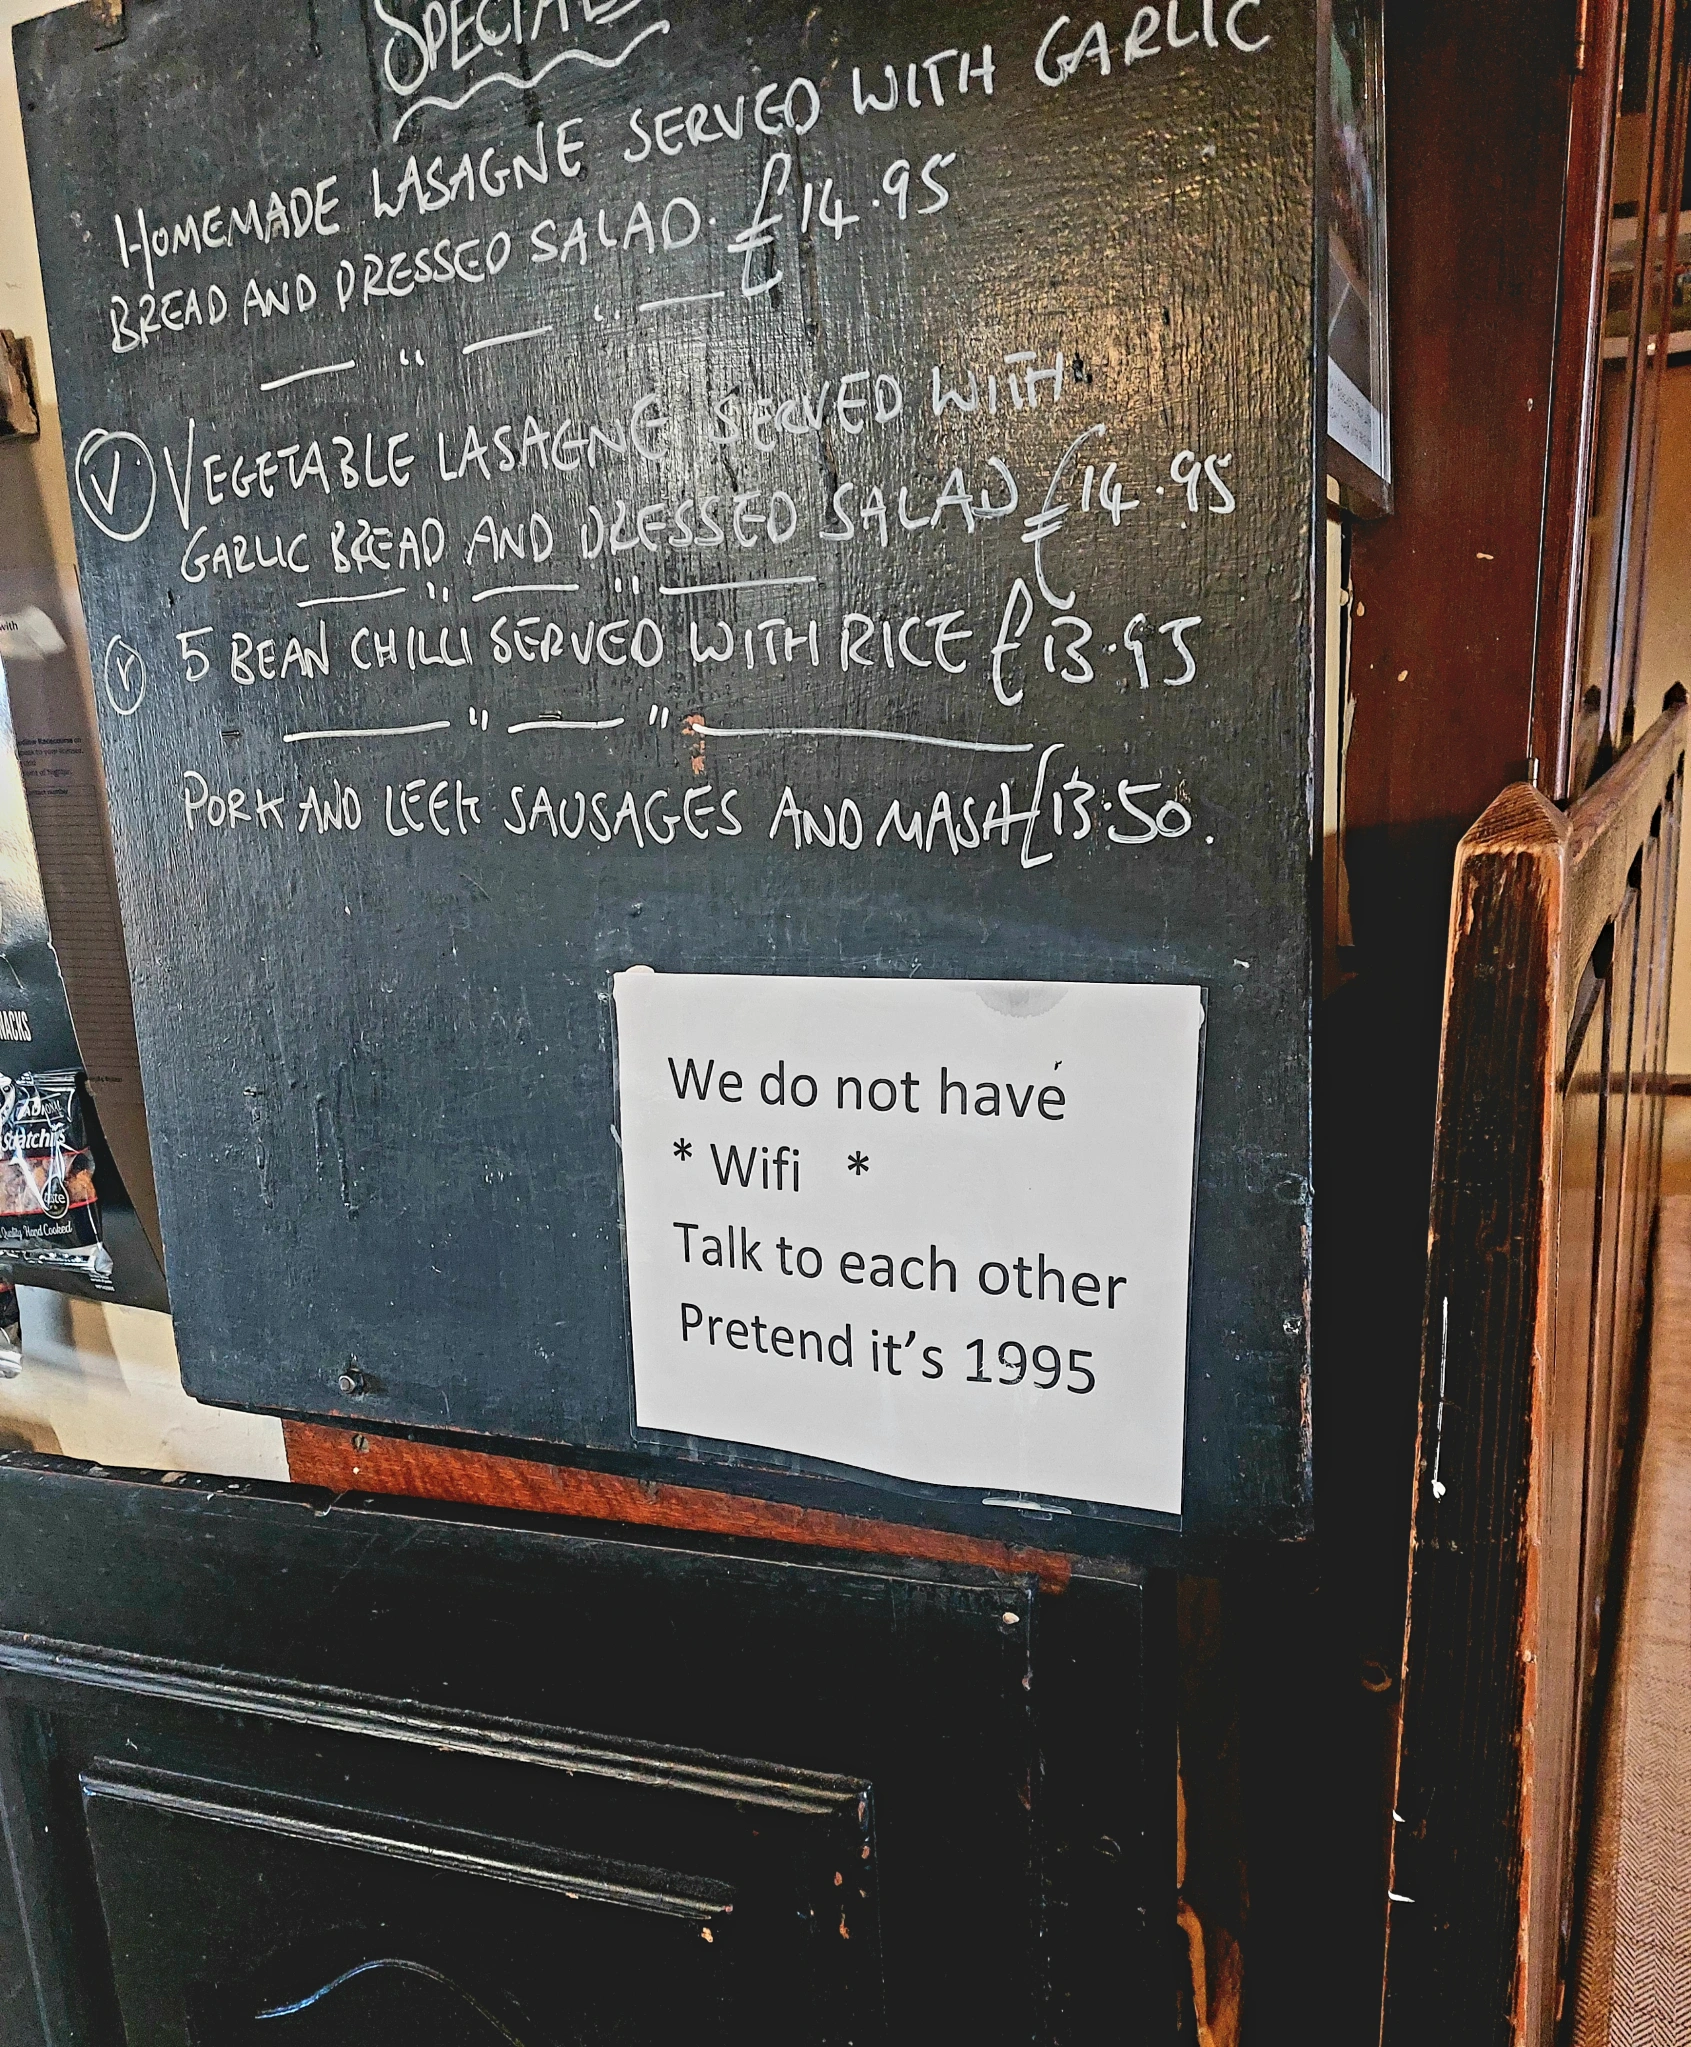 SPECIALS
HOMEMADE LASAGNE SERVED WITH GARLIC
BREAD AND DRESSED SALAD. £14.95
V VEGETABLE LASAGNE SERVED WITH
GARLIC BREAD AND DRESSED SALAD £14.95
V 5 BEAN CHILLI SERVED WITH RICE £13.95
PORK AND LEEK SAUSAGES AND MASH £13.50.
We do not have
* Wifi *
Talk to each other
Pretend it's 1995
with
NACKS
Scratchings
Quality Hand Cooked